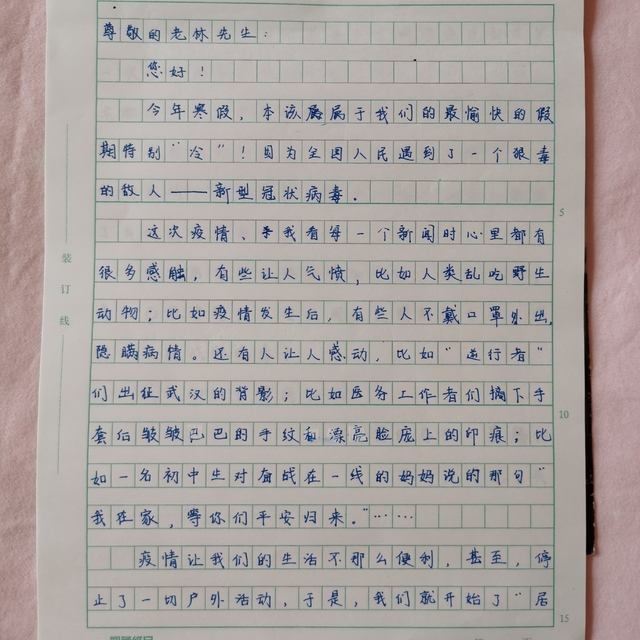 尊敬的老林先生：
您好！
今年寒假，本该属于我们的最愉快的假
期特别“冷”！因为全国人民遇到了一个狠毒
的敌人——新型冠状病毒．
这次疫情、手我看每一个新闻时心里都有
很多感触，有些让人气愤，比如人类乱吃野生
动物；比如疫情发生后，有些人不戴口罩外出，
隐瞒病情。还有人让人感动，比如“逆行者”
们出征武汉的背影；比如医务工作者们摘下手
套后皱皱巴巴的手纹和漂亮脸庞上的印痕；比
如一名初中生对奋战在一线的妈妈说的那句“
我在家，等你们平安归来。”……
疫情让我们的生活不那么便利，甚至，停
止了一切户外活动，于是，我们就开始了“居
装
订
线
5
10
15